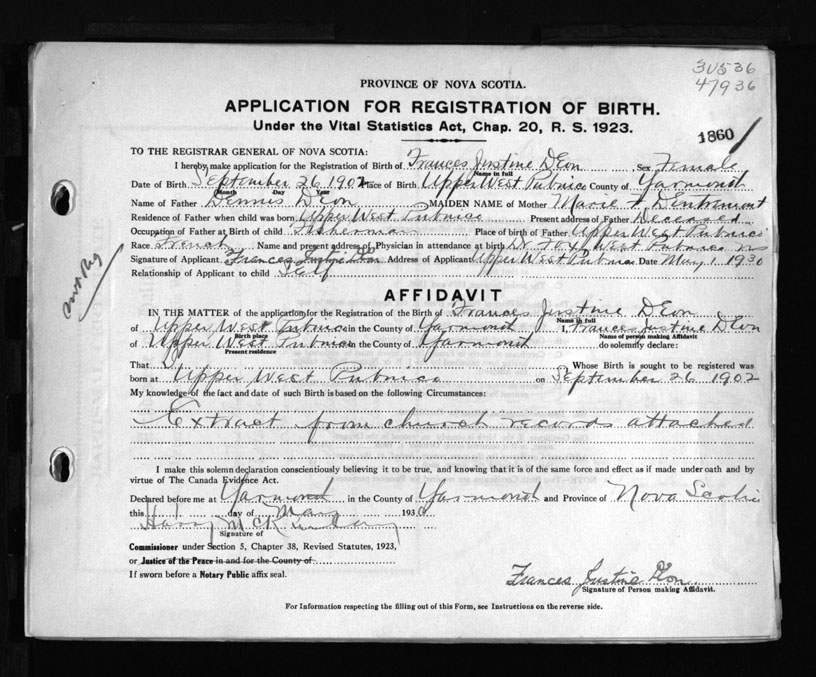 PROVINCE OF NOVA SCOTIA.
APPLICATION FOR REGISTRATION OF BIRTH.
Under the Vital Statistics Act, Chap. 20, R. S. 1923.
1860
TO THE REGISTRAR GENERAL OF NOVA SCOTIA:
I hereby make application for the Registration of Birth of Frances Justine DEon Sex Female
Name in full
Date of Birth September 26 1902 Place of Birth Upper West Pubnico County of Yarmouth
Month Day Year
Name of Father Dennis DEon MAIDEN NAME of Mother Marie
Residence of Father when child was born Upper West Pubnico Present address of Father Deceased
Occupation of Father at Birth of child Fisherman Place of birth of Father Upper West Pubnico
Race French Name and present address of Physician in attendance at birth Dr Fox, West Pubnico NS
Signature of Applicant Frances Justine DEon Address of Applicant Upper West Pubnico Date May 1 1930
Relationship of Applicant to child Self
AFFIDAVIT
IN THE MATTER of the application for the Registration of the Birth of Frances Justine DEon
Name in full
of Upper West Pubnico in the County of Yarmouth I, Frances Justine DEon
Birth place Name of person making Affidavit
of Upper West Pubnico in the County of Yarmouth do solemnly declare:
Present residence
That I Whose Birth is sought to be registered was
born at Upper West Pubnico on September 26 1902
My knowledge of the fact and date of such Birth is based on the following Circumstances:
Extract from church records attached
I make this solemn declaration conscientiously believing it to be true, and knowing that it is of the same force and effect as if made under oath and by
virtue of The Canada Evidence Act.
Declared before me at Yarmouth in the County of Yarmouth and Province of Nova Scotia
this 1 day of May 1930
Signature of
Commissioner under Section 5, Chapter 38, Revised Statutes, 1923,
or Justice of the Peace in and for the County of
If sworn before a Notary Public affix seal.
Frances Justine DEon
Signature of Person making Affidavit.
For Information respecting the filling out of this Form, see Instructions on the reverse side.